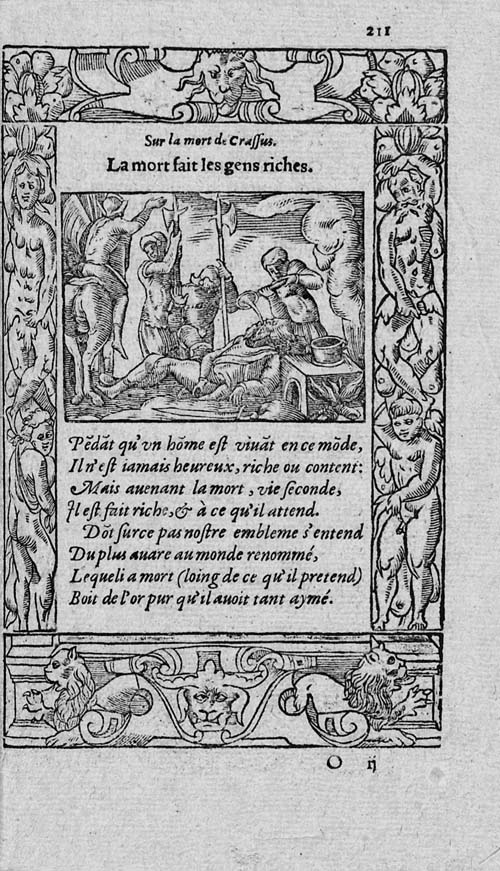 211
Sur la mort de Craſſus.
La mort fait les gens riches.
Pẽdãt qu'vn hõme eſt viuãt en ce mõde,
Il n'eſt iamais heureux, riche ou content:
Mais auenant la mort, vie ſeconde,
Il eſt fait riche, & à ce qu'il attend.
Dõt ſur ce pas noſtre embleme s'entend
Du plus auare au monde renommé,
Lequel i a mort (loing de ce qu'il pretend)
Boit de l'or pur qu'il auoit tant aymé.
O ij